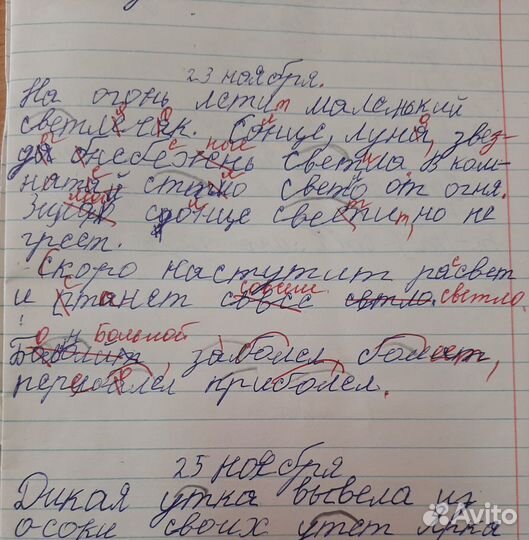 23 ноября.
На огонь летит маленький
светлячок. Солнце, луна, звез-
да небесные светила. В ком-
нате стало светло от огня.
Зимой солнце светит, но не
греет.
Скоро наступит рассвет
и станет совсем светло.
Больной
заболел, болеет,
переболел приболел.
25 ноября
Дикая утка вывела из
осоки своих утят Ярко
Avito